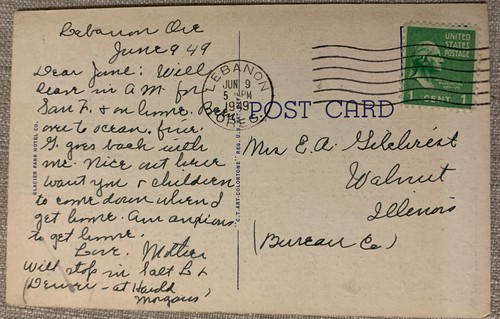 Lebanon Ore
June 9 49
Dear June: Will
leave in A.M. for
San F. & on home. Been
one to ocean, fine.
G. goes back with
me. Nice out here
want you & children
to come down when I
get home. Am anxious
to get home.
Love. Mother
Will stop in Salt L &
(Denver - at Harold
Morgans)
GLACIER PARK HOTEL CO.
C.T. ART-COLORTONE" REG. U.S.
LEBANON
JUN 9
5 PM
1949
OREG.
POST CARD
UNITED
STATES
POSTAGE
1 CENT 1
Mrs E. A. Gilchrist
Walnut
Illinois
(Bureau Co)